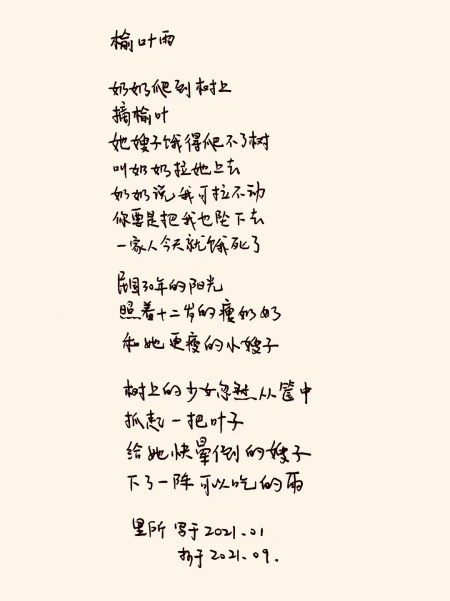 榆叶雨
奶奶爬到树上
摘榆叶
她嫂子饿得爬不了树
叫奶奶拉她上去
奶奶说我可拉不动
你要是把我也坠下去
一家人今天就饿死了
民国30年的阳光
照着十二岁的瘦奶奶
和她更瘦的小嫂子
树上的少女忽然从筐中
抓起一把叶子
给她快晕倒的嫂子
下了一阵可以吃的雨
里所 写于2021.01
抄于2021.09.